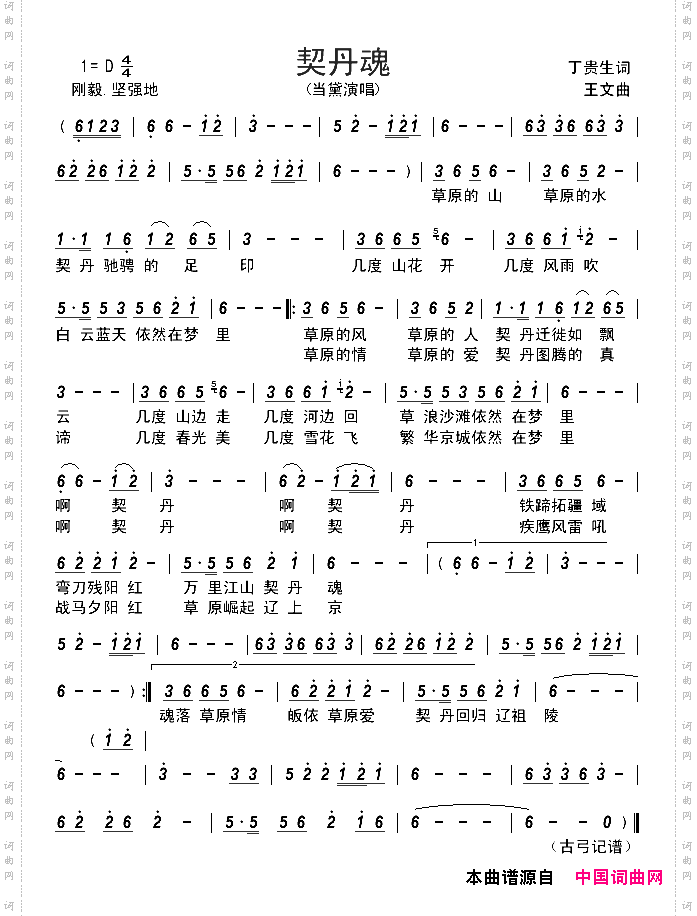 契丹魂
1= D 4/4
丁贵生词
刚毅.坚强地
(当黛演唱)
王文曲
( 6123 | 6 6 - 12 | 3 - - - | 5 2 - 121 | 6 - - - | 63 36 63 33 |
62 26 12 2 | 5·5 56 2 121 | 6 - - ) | 3 6 5 6 - | 3 6 5 2 - |
草原的 山 草原的水
1·1 16 12 65 | 3 - - - | 3 6 6 5 56 - | 3 6 6 1 12 - |
契 丹 驰骋 的 足 印 几度 山花 开 几度 风雨 吹
5·5 53 56 21 | 6 - - - ‖: 3 6 5 6 - | 3 6 5 2 - | 1·1 16 12 65 |
白 云蓝天 依然在梦 里 草原的风 草原的 人 契 丹迁徙如 飘
草原的情 草原的 爱 契 丹图腾的 真
3 - - - | 3 6 6 5 56 - | 3 6 6 1 12 - | 5·5 53 56 21 | 6 - - - |
云 几度 山边 走 几度 河边 回 草 浪沙滩依然 在梦 里
谛 几度 春光 美 几度 雪花 飞 繁 华京城依然 在梦 里
6 6 - 12 | 3 - - - | 6 6 - 121 | 6 - - - | 3 6 6 5 6 - |
啊 契 丹 啊 契 丹 铁蹄拓疆 域
啊 契 丹 啊 契 丹 疾鹰风雷 吼
1
6 2 2 1 2 - | 5·5 56 2 1 | 6 - - - | ( 6 6 - 12 | 3 - - - |
弯刀残阳 红 万 里江山 契 丹 魂
战马夕阳 红 草 原崛起 辽 上 京
5 2 - 121 | 6 - - - | 63 36 63 33 | 62 26 12 2 | 5·5 56 2 121 |
2
6 - - - ) :‖ 3 6 6 5 6 - | 6 2 2 1 2 - | 5·5 56 2 1 | 6 - - - |
魂落 草原情 皈依 草原爱 契 丹回归 辽祖 陵
( 12 |
6 - - - | 3 - - 33 | 5 22 121 | 6 - - - | 3 - - 33 |
62 26 2 - | 5·5 56 2 12 | 6 - - - | 6 - - 0 ) ‖
(古弓记谱)
本曲谱源自 中国词曲网
词曲网